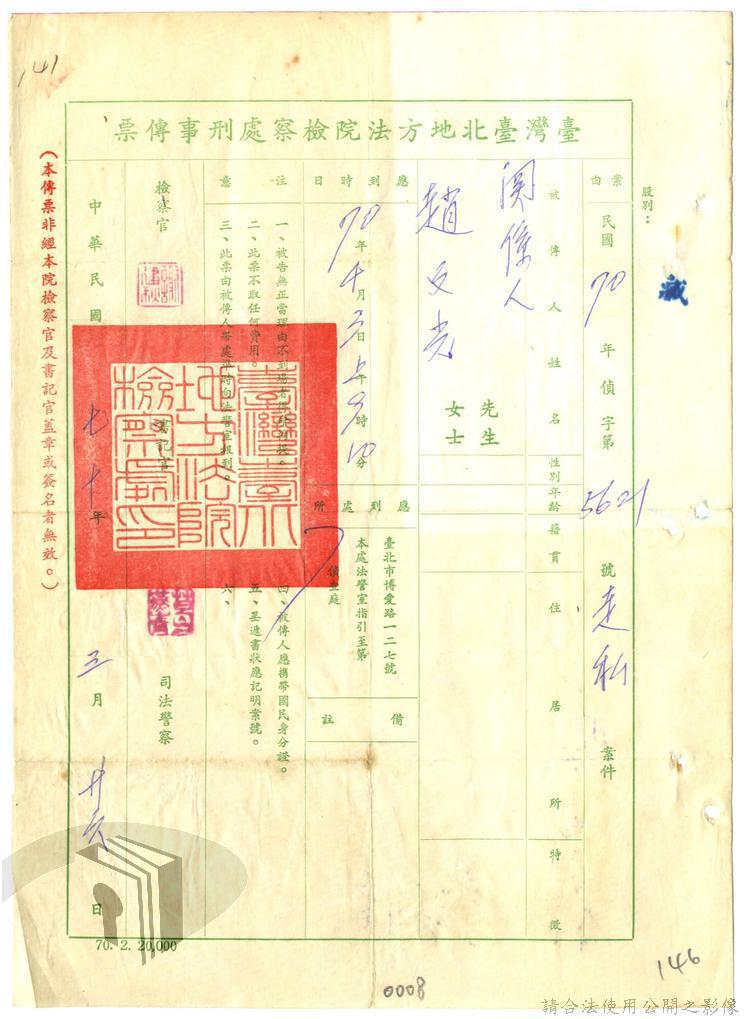 141
臺灣臺北地方法院檢察處刑事傳票
股別：
案由
民國70年偵字第5621號走私案件
被傳人姓名
性別
年齡
籍貫
住居所
特徵
関係人
趙文光
先生
女士
應到時日
70年4月3日上午9時10分
應到處所
臺北市博愛路一二七號
本處法警室指引至第
偵查庭
備註
注意
一、被告無正當理由不到場者得拘提。
二、此票不取任何費用。
三、此票由被傳人帶處準時向法警室報到。
四、被傳人應攜帶國民身分證。
五、呈遞書狀應記明案號。
六、
檢察官
書記官
司法警察
臺灣臺北地方法院檢察處印
中華民國七十年三月廿六日
（本傳票非經本院檢察官及書記官蓋章或簽名者無效。）
70. 2. 20,000
146
0008
請合法使用公開之影像